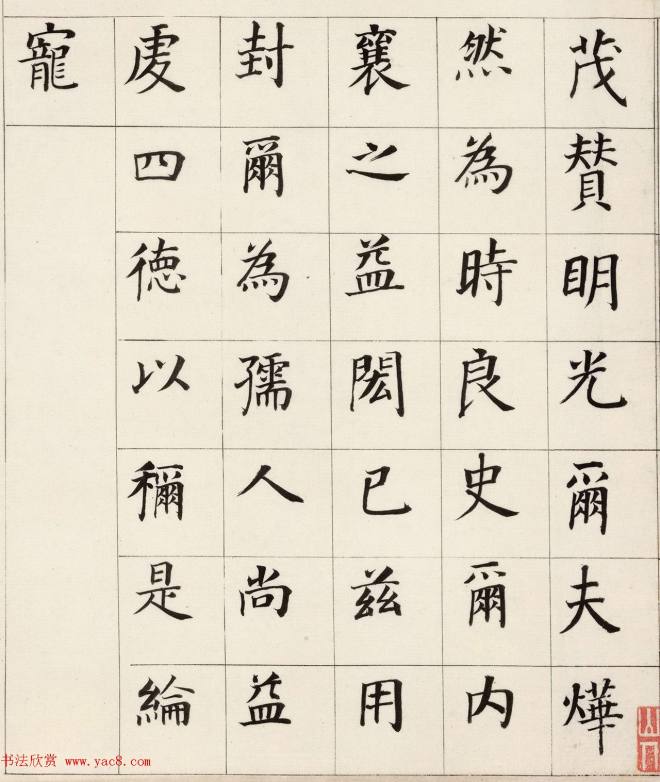 茂賛明光爾夫燁
然為時良史爾内
襄之益閎已兹用
封爾為孺人尚益
虔四德以稱是綸
寵
书法欣赏 www.yac8.com